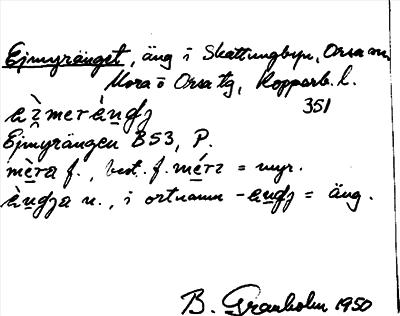 Ejmyränget, äng i Skattungbyn, Orsa sn,
Mora o Orsa tg, Kopparb. l.
351
Ejmyrängen B53, P.
mèra f., best. f. = myr.
n., i ortnamn = äng.
B. Granholm 1950